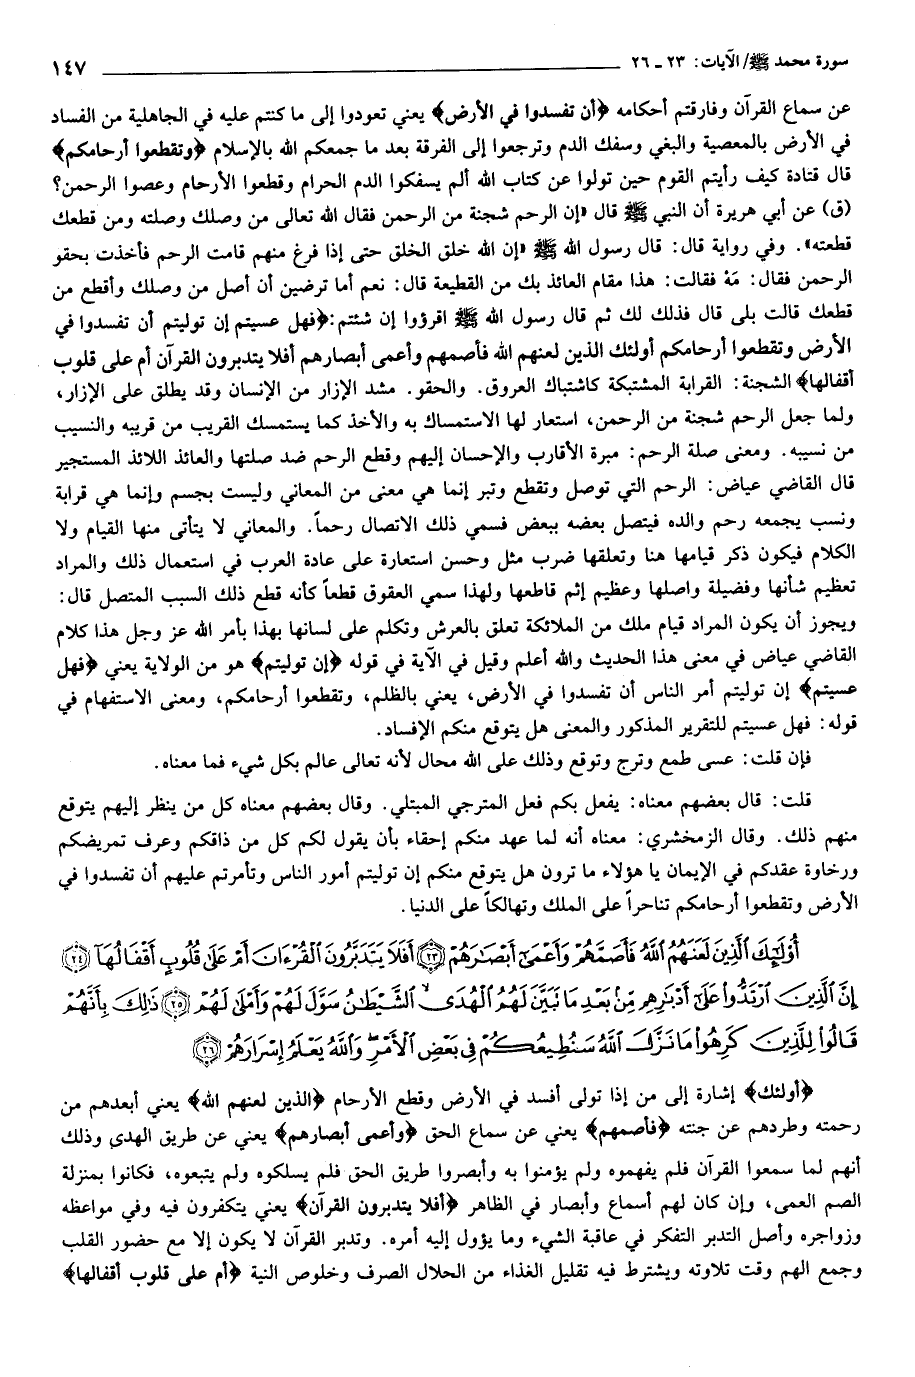 سورة محمد ﷺ/ الآيات: ٢٣ ـ ٢٦ ١٤٧
عن سماع القرآن وفارقتم أحكامه ﴿أن تفسدوا في الأرض﴾ يعني تعودوا إلى ما كنتم عليه في الجاهلية من الفساد
في الأرض بالمعصية والبغي وسفك الدم وترجعوا إلى الفرقة بعد ما جمعكم الله بالإسلام ﴿وتقطعوا أرحامكم﴾
قال قتادة كيف رأيتم القوم حين تولوا عن كتاب الله ألم يسفكوا الدم الحرام وقطعوا الأرحام وعصوا الرحمن؟
(ق) عن أبي هريرة أن النبي ﷺ قال «إن الرحم شجنة من الرحمن فقال الله تعالى من وصلك وصلته ومن قطعك
قطعته». وفي رواية قال: قال رسول الله ﷺ «إن الله خلق الخلق حتى إذا فرغ منهم قامت الرحم فأخذت بحقو
الرحمن فقال: مَهْ فقالت: هذا مقام العائذ بك من القطيعة قال: نعم أما ترضين أن أصل من وصلك وأقطع من
قطعك قالت بلى قال فذلك لك ثم قال رسول الله ﷺ اقرؤوا إن شئتم:﴿فهل عسيتم إن توليتم أن تفسدوا في
الأرض وتقطعوا أرحامكم أولئك الذين لعنهم الله فأصمهم وأعمى أبصارهم أفلا يتدبرون القرآن أم على قلوب
أقفالها﴾ الشجنة: القرابة المشتبكة كاشتباك العروق. والحقو. مشد الإزار من الإنسان وقد يطلق على الإزار،
ولما جعل الرحم شجنة من الرحمن، استعار لها الاستمساك به والأخذ كما يستمسك القريب من قريبه والنسيب
من نسيبه. ومعنى صلة الرحم: مبرة الأقارب والإحسان إليهم وقطع الرحم ضد صلتها والعائذ اللائذ المستجير
قال القاضي عياض: الرحم التي توصل وتقطع وتبر إنما هي معنى من المعاني وليست بجسم وإنما هي قرابة
ونسب يجمعه رحم والده فيتصل بعضه ببعض فسمي ذلك الاتصال رحماً. والمعاني لا يتأتى منها القيام ولا
الكلام فيكون ذكر قيامها هنا وتعلقها ضرب مثل وحسن استعارة على عادة العرب في استعمال ذلك والمراد
تعظيم شأنها وفضيلة واصلها وعظيم إثم قاطعها ولهذا سمي العقوق قطعاً كأنه قطع ذلك السبب المتصل قال:
ويجوز أن يكون المراد قيام ملك من الملائكة تعلق بالعرش وتكلم على لسانها بهذا بأمر الله عز وجل هذا كلام
القاضي عياض في معنى هذا الحديث والله أعلم وقيل في الآية في قوله ﴿إن توليتم﴾ هو من الولاية يعني ﴿فهل
عسيتم﴾ إن توليتم أمر الناس أن تفسدوا في الأرض، يعني بالظلم، وتقطعوا أرحامكم، ومعنى الاستفهام في
قوله: فهل عسيتم للتقرير المذكور والمعنى هل يتوقع منكم الإفساد.
فإن قلت: عسى طمع وترج وتوقع وذلك على الله محال لأنه تعالى عالم بكل شيء فما معناه.
قلت: قال بعضهم معناه: يفعل بكم فعل المترجي المبتلي. وقال بعضهم معناه كل من ينظر إليهم يتوقع
منهم ذلك. وقال الزمخشري: معناه أنه لما عهد منكم إحقاء بأن يقول لكم كل من ذاقكم وعرف تمريضكم
ورخاوة عقدكم في الإيمان يا هؤلاء ما ترون هل يتوقع منكم إن توليتم أمور الناس وتأمرتم عليهم أن تفسدوا في
الأرض وتقطعوا أرحامكم تناحراً على الملك وتهالكاً على الدنيا.
أُوْلَٰٓئِكَ ٱلَّذِينَ لَعَنَهُمُ ٱللَّهُ فَأَصَمَّهُمْ وَأَعْمَىٰٓ أَبْصَٰرَهُمْ ﴿٢٣﴾ أَفَلَا يَتَدَبَّرُونَ ٱلْقُرْءَانَ أَمْ عَلَىٰ قُلُوبٍ أَقْفَالُهَآ ﴿٢٤﴾
إِنَّ ٱلَّذِينَ ٱرْتَدُّوا۟ عَلَىٰٓ أَدْبَٰرِهِم مِّنۢ بَعْدِ مَا تَبَيَّنَ لَهُمُ ٱلْهُدَى ۙ ٱلشَّيْطَٰنُ سَوَّلَ لَهُمْ وَأَمْلَىٰ لَهُمْ ﴿٢٥﴾ ذَٰلِكَ بِأَنَّهُمْ
قَالُوا۟ لِلَّذِينَ كَرِهُوا۟ مَا نَزَّلَ ٱللَّهُ سَنُطِيعُكُمْ فِى بَعْضِ ٱلْأَمْرِ ۖ وَٱللَّهُ يَعْلَمُ إِسْرَارَهُمْ ﴿٢٦﴾
﴿أولئك﴾ إشارة إلى من إذا تولى أفسد في الأرض وقطع الأرحام ﴿الذين لعنهم الله﴾ يعني أبعدهم من
رحمته وطردهم عن جنته ﴿فأصمهم﴾ يعني عن سماع الحق ﴿وأعمى أبصارهم﴾ يعني عن طريق الهدي وذلك
أنهم لما سمعوا القرآن فلم يفهموه ولم يؤمنوا به وأبصروا طريق الحق فلم يسلكوه ولم يتبعوه، فكانوا بمنزلة
الصم العمى، وإن كان لهم أسماع وأبصار في الظاهر ﴿أفلا يتدبرون القرآن﴾ يعني يتكفرون فيه وفي مواعظه
وزواجره وأصل التدبر التفكر في عاقبة الشيء وما يؤول إليه أمره. وتدبر القرآن لا يكون إلا مع حضور القلب
وجمع الهم وقت تلاوته ويشترط فيه تقليل الغذاء من الحلال الصرف وخلوص النية ﴿أم على قلوب أقفالها﴾